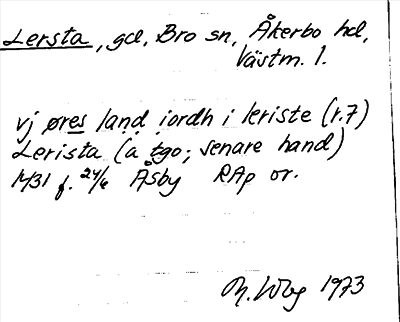 Lersta, gd, Bro sn, Åkerbo hd,
Västm. l.
vj øres land iordh i leriste (r.7)
Lerista (å tgo; senare hand)
1431 f. 24/6 Åsby RAp or.
1973